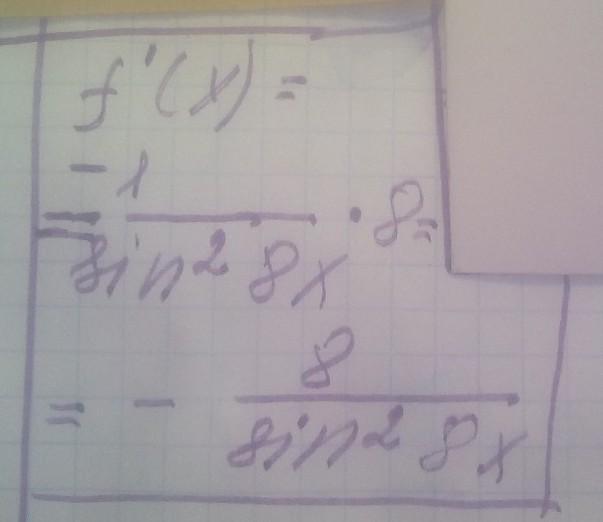 f'(x) =
= -1/sin² 8x · 8 =
= - 8/sin² 8x